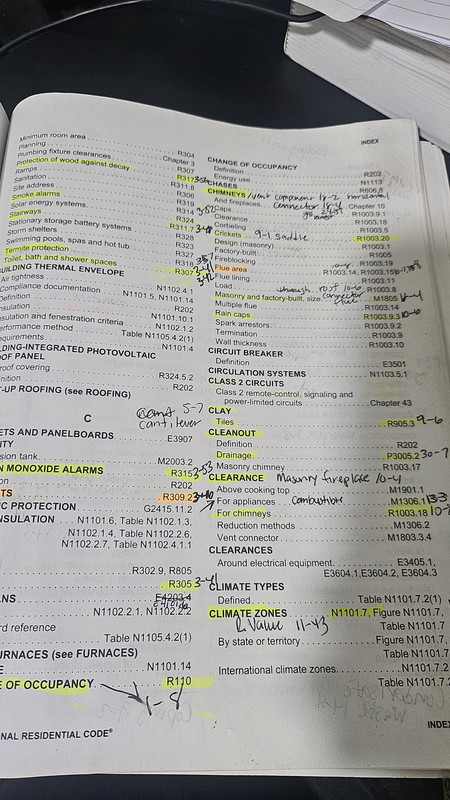 INDEX
Minimum room area R304
Planning Chapter 3
Plumbing fixture clearances R307
Protection of wood against decay R317
Ramps R311.8
Sanitation R306
Site address R319
Smoke alarms R314
Solar energy systems R324
Stairways R311.7
Stationary storage battery systems
Storm shelters R323
Swimming pools, spas and hot tub
Termite protection
Toilet, bath and shower spaces R307
BUILDING THERMAL ENVELOPE
Air tightness N1102.4.1
Compliance documentation N1101.5, N1101.14
Definition R202
Insulation N1101.10.1
Insulation and fenestration criteria N1102.1.2
Performance method Table N1105.4.2(1)
Requirements N1101.4
LDING-INTEGRATED PHOTOVOLTAIC
OOF PANEL R324.5.2
roof covering R202
nition
T-UP ROOFING (see ROOFING)
5-7
cantilever
C
ETS AND PANELBOARDS E3907
ITY
sion tank M2003.2
N MONOXIDE ALARMS R315 3-53
on R202
TS R309.2
IC PROTECTION G2415.11.2
NSULATION N1101.6, Table N1102.1.3,
N1102.1.4, Table N1102.2.6,
N1102.2.7, Table N1102.4.1.1
R302.9, R805
R305 3-41
ANS E4203.4
N1102.2.1, N1102.2.2
rd reference Table N1105.4.2(1)
URNACES (see FURNACES)
E N1101.14
E OF OCCUPANCY R110
1-8
NAL RESIDENTIAL CODE®
CHANGE OF OCCUPANCY
Definition R202
Energy use N1113
CHASES R606.8
CHIMNEYS
And fireplaces Chapter 10
Caps R1003.9.1
Clearance R1003.18
Corbeling R1003.5
Crickets 9-1 saddle R1003.20
Design (masonry) R1003.1
Factory-built R1005
Fireblocking R1003.19
Flue area R1003.14, R1003.15
Flue lining R1003.11
Load R1003.8
Masonry and factory-built, size M1805
Multiple flue R1003.14
Rain caps R1003.9.3 10-6
Spark arrestors R1003.9.2
Termination R1003.9
Wall thickness R1003.10
CIRCUIT BREAKER
Definition E3501
CIRCULATION SYSTEMS N1103.5.1
CLASS 2 CIRCUITS
Class 2 remote-control, signaling and
power-limited circuits Chapter 43
CLAY
Tiles R905.3 9-6
CLEANOUT
Definition R202
Drainage P3005.2 30-7
Masonry chimney R1003.17
CLEARANCE Masonry fireplace 10-4
Above cooking top M1901.1
For appliances combustible M1306.1 13-3
For chimneys R1003.18
Reduction methods M1306.2
Vent connector M1803.3.4
CLEARANCES
Around electrical equipment E3405.1,
E3604.1, E3604.2, E3604.3
CLIMATE TYPES
Defined Table N1101.7.2(1)
CLIMATE ZONES N1101.7, Figure N1101.7,
R Value 11-43 Table N1101.7
By state or territory Figure N1101.7,
Table N1101.7
International climate zones N1101.7.2
Table N1101.7.2
INDEX